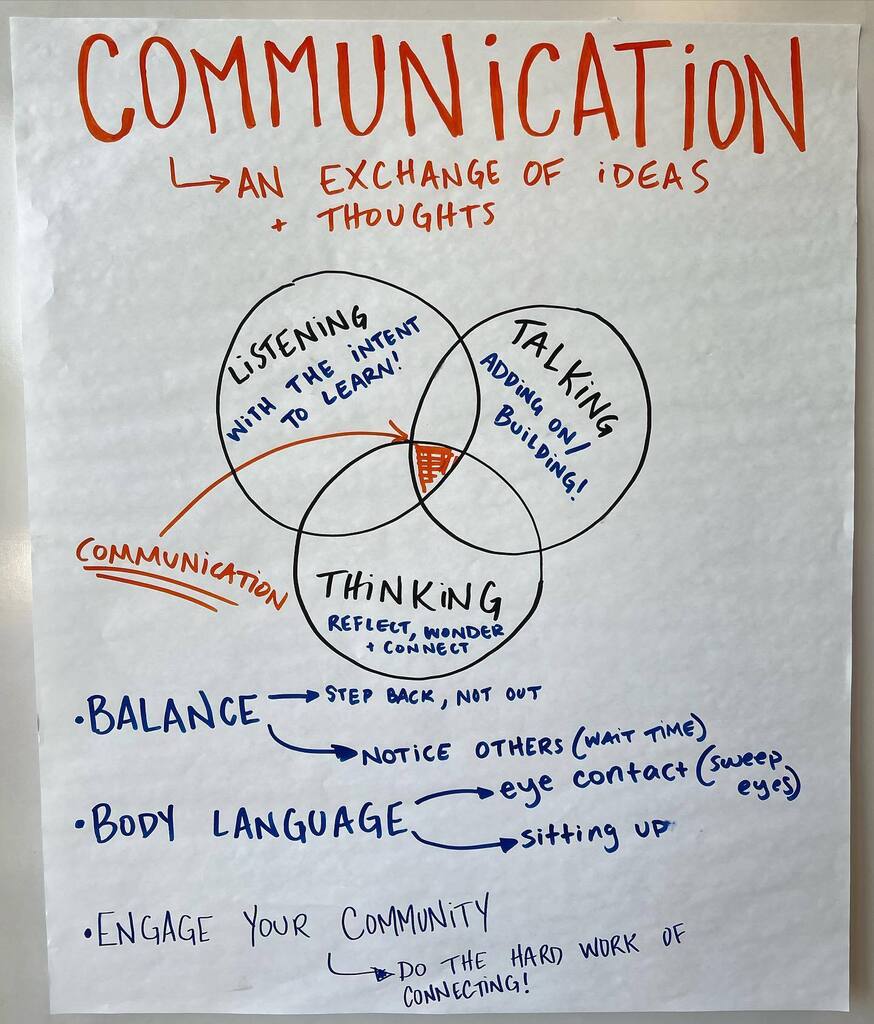 COMMUNiCATiON
AN EXCHANGE OF iDEAS
+ THOUGHTS
LiSTENiNG
WiTH THE iNTENT
TO LEARN!
TALKiNG
ADDiNG ON/
BuiLDiNG!
COMMUNiCATiON
THiNKiNG
REFLECT, WONDER
+ CONNECT
• BALANCE
STEP BACK, NOT OUT
NOTICE OTHERS (WAIT TIME)
• BODY LANGUAGE
eye contact (sweep
eyes)
sitting up
• ENGAGE YOUR COMMUNITY
DO THE HARD WORK OF
CONNECTING!